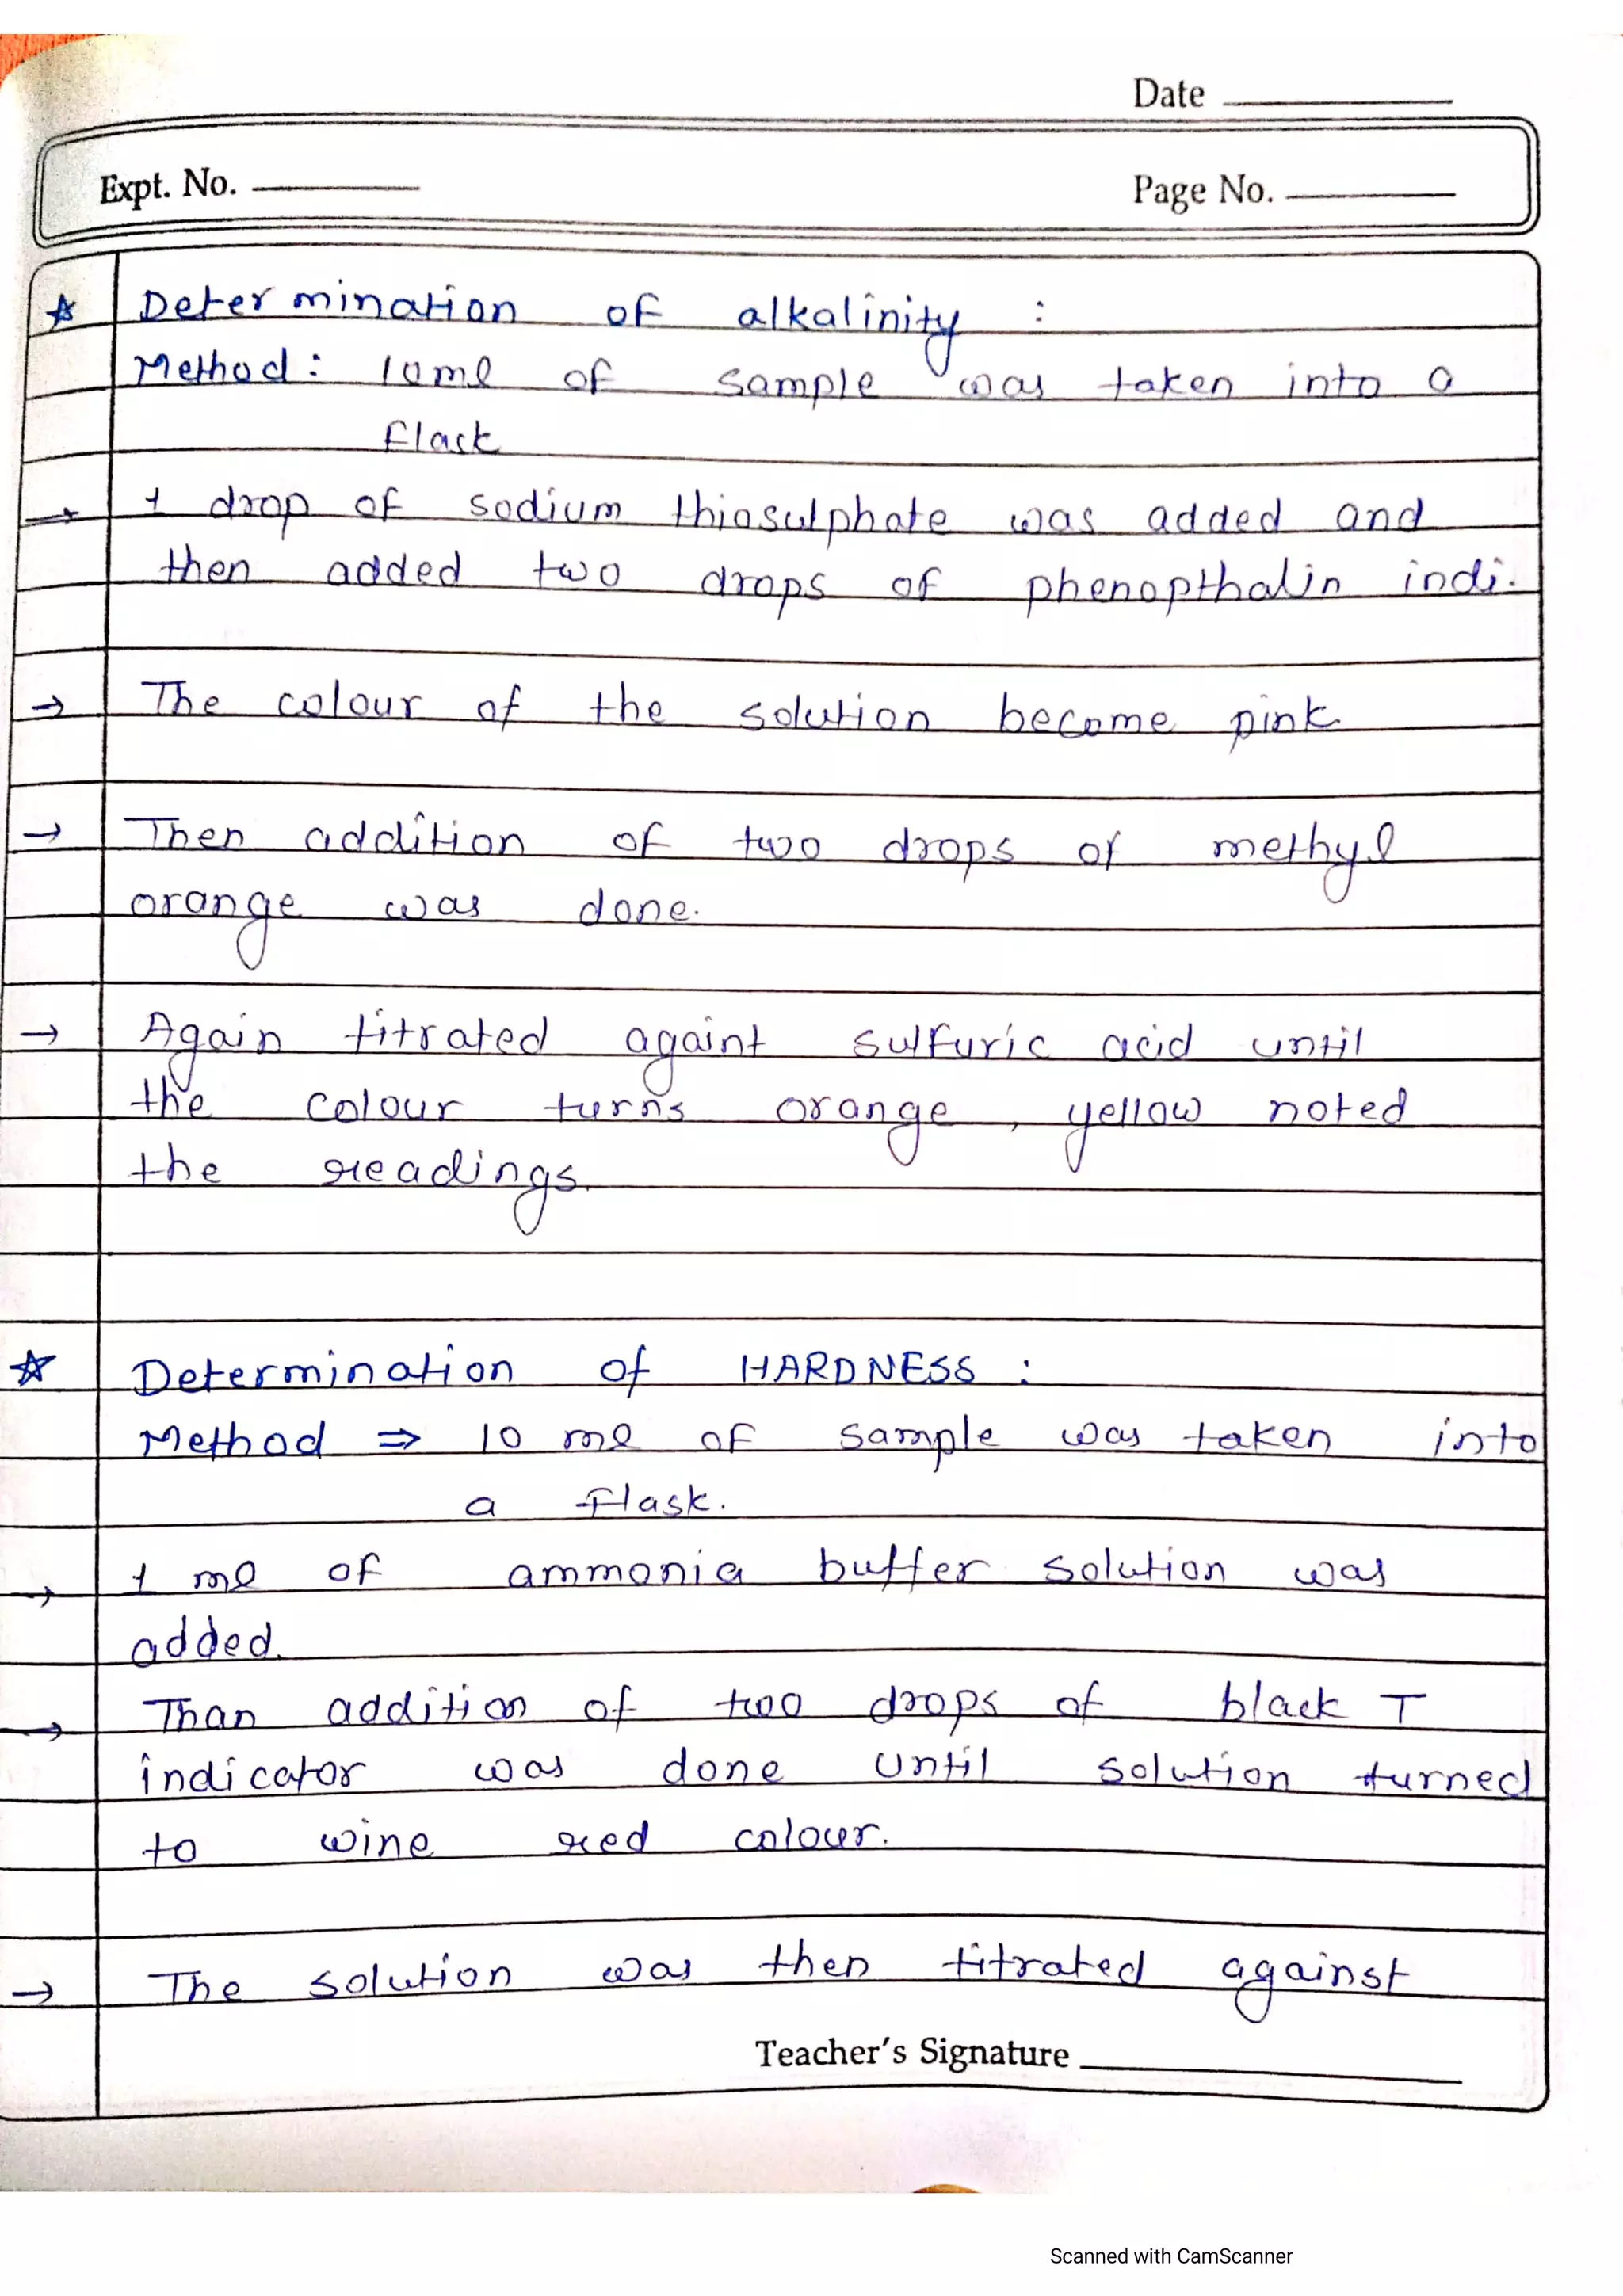 Date
Expt. No.
Page No.
☆ Determination of alkalinity :
Method : 10ml of sample was taken into a
flask
→ 1 drop of sodium thiosulphate was added and
then added two drops of phenopthalin indi.
→ The colour of the solution become pink
→ Then addition of two drops of methyl
orange was done.
→ Again titrated againt sulfuric acid until
the colour turns orange, yellow noted
the readings.
☆ Determination of HARDNESS :
Method ⇒ 10 ml of sample was taken into
a flask.
→ 1 ml of ammonia buffer solution was
added.
→ Than addition of two drops of black T
indicator was done until solution turned
to wine red colour.
→ The solution was then titrated against
Teacher's Signature
Scanned with CamScanner